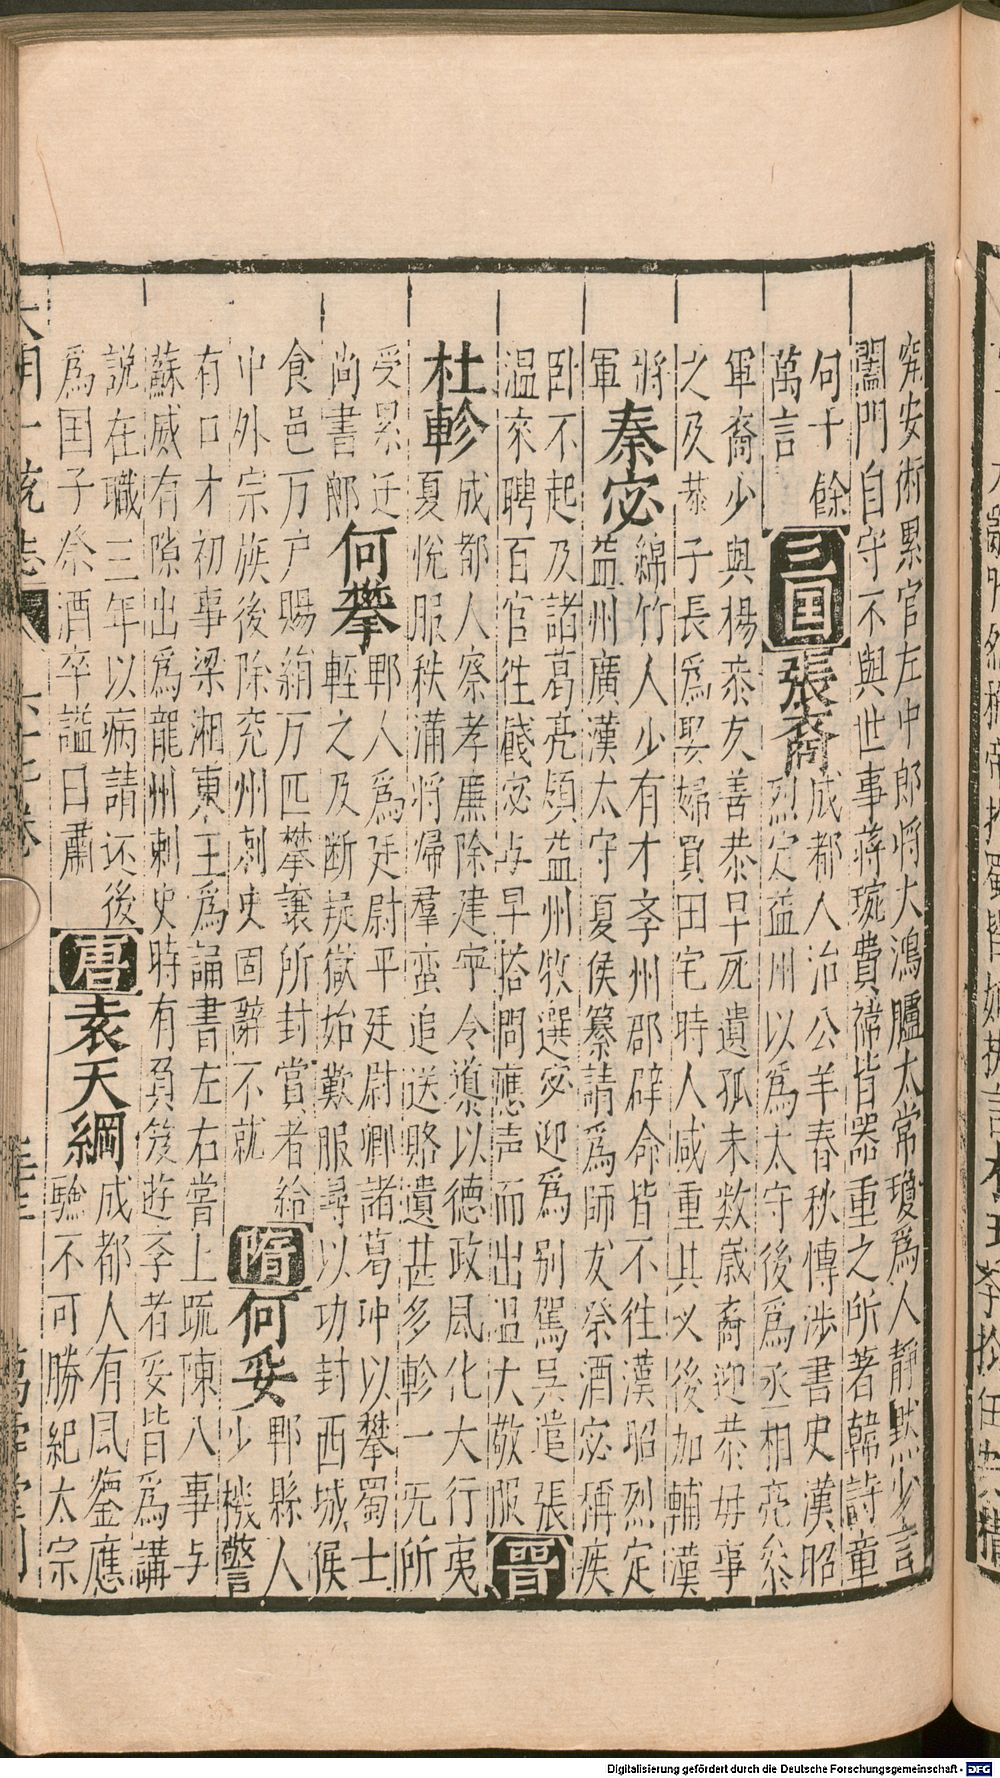 究安術累官左中郎將大鴻臚太常瓊爲人靜默少言
闔門自守不與世事蔣琬費禕皆器重之所著韓詩章
句十餘
萬言
三国
張裔
成都人治公羊春秋博涉書史漢昭
烈定益州以爲太守後爲丞相亮參
軍裔少與楊恭友善恭早死遺孤未数歲裔迎恭母事
之及恭子長爲娶婦買田宅時人咸重其义後加輔漢
將
軍
秦宓
綿竹人少有才李州郡辟命皆不往漢昭烈定
益州廣漢太守夏侯纂請爲師友祭酒宓稱疾
卧不起及諸葛亮領益州牧選宓迎爲别駕吳遣張
温來聘百官往餞宓与早荅問應声而出温大敬服
晋
杜軫
成都人察孝廉除建寧令導以德政风化大行夷
夏悅服秩滿將帰羣蛮追送賂遺甚多軫一无所
受累迁
尚書郎
何攀
郫人爲廷尉平廷尉卿諸葛冲以攀蜀士
輕之及断疑獄始歎服尋以功封西城侯
食邑万户賜絹万匹攀讓所封賞者給
中外宗族後除兖州刺史固辭不就
隋
何妥
郫縣人
少機警
有口才初事梁湘東王爲誦書左右嘗上疏陳八事与
蘇威有隙出爲龍州刺史時有負笈遊李者妥皆爲講
說在職三年以病請还後
爲国子祭酒卒謚曰肅
唐
袁天綱
成都人有风鑒應
驗不可勝紀太宗
大明一統志
六十七卷
萬壽堂刊
Digitalisierung gefördert durch die Deutsche Forschungsgemeinschaft - DFG